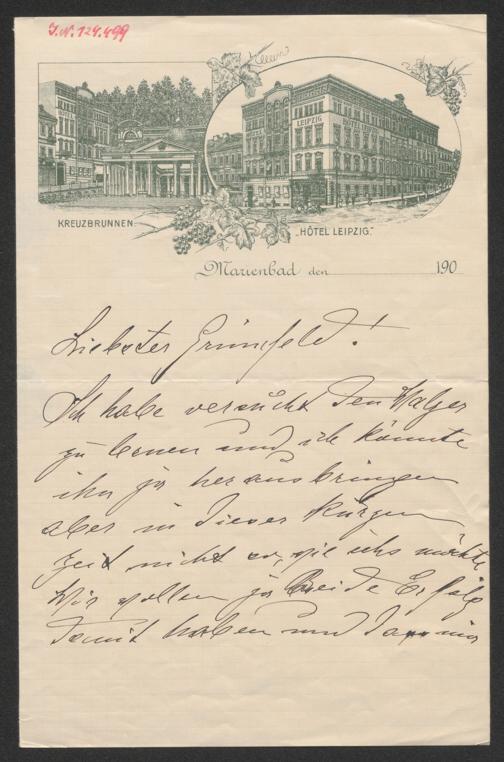 J.N. 124.499
LEIPZIG
KREUZBRUNNEN
„HÔTEL LEIPZIG."
Marienbad den 190
Liebster Grünfeld!
Ich habe versucht den Walzer
zu lernen und ich könnte
ihn ja herausbringen
aber in dieser kurzen
Zeit nicht so, wie ichs möchte
Wir wollen ja beide Erfolg
damit haben und da